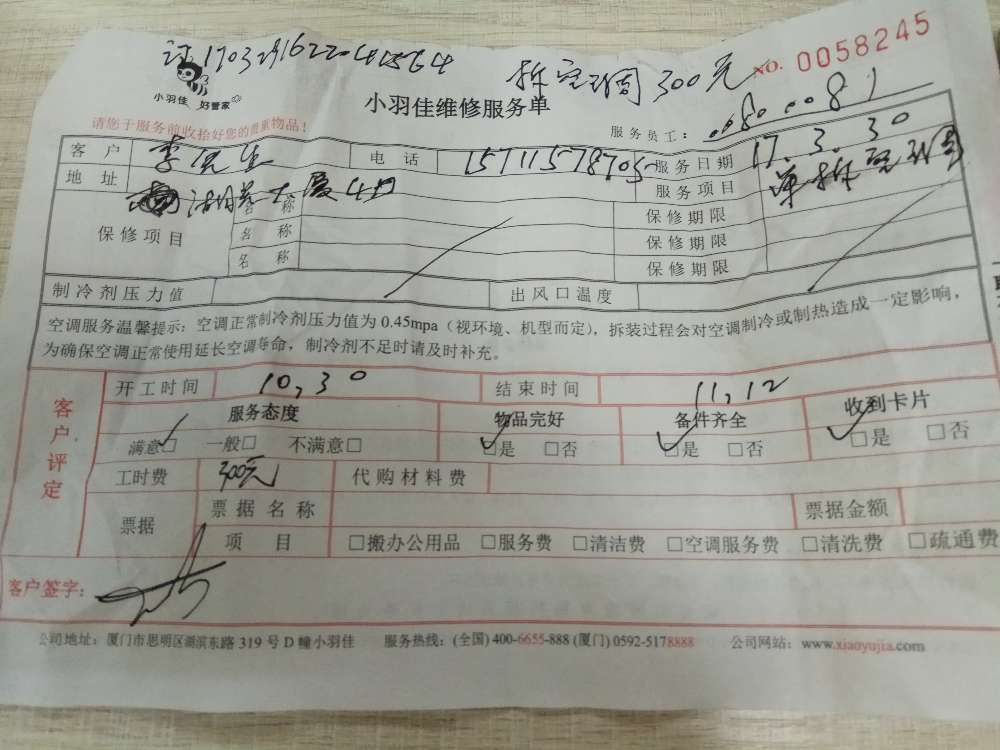 拆空调300元
NO. 0058245
小羽佳 好管家
小羽佳维修服务单
请您于服务前收拾好您的贵重物品!
服务员工:
客户 李先生 电话 服务日期 17.3.30
地址 服务项目 单拆空调
保修项目 名称 保修期限
名称 保修期限
名称 保修期限
制冷剂压力值 出风口温度
空调服务温馨提示:空调正常制冷剂压力值为0.45mpa(视环境、机型而定),拆装过程会对空调制冷或制热造成一定影响,
为确保空调正常使用延长空调寿命,制冷剂不足时请及时补充。
客户评定
开工时间 10,30 结束时间 11,12
服务态度 物品完好 备件齐全 收到卡片
满意□ 一般□ 不满意□ □是 □否 □是 □否 □是 □否
工时费 300元 代购材料费
票据 票据名称 票据金额
项目 □搬办公用品 □服务费 □清洁费 □空调服务费 □清洗费 □疏通费
客户签字:
公司地址:厦门市思明区湖滨东路319号D幢小羽佳 服务热线:(全国)400-6655-888 (厦门)0592-5178888 公司网站:www.xiaoyujia.com